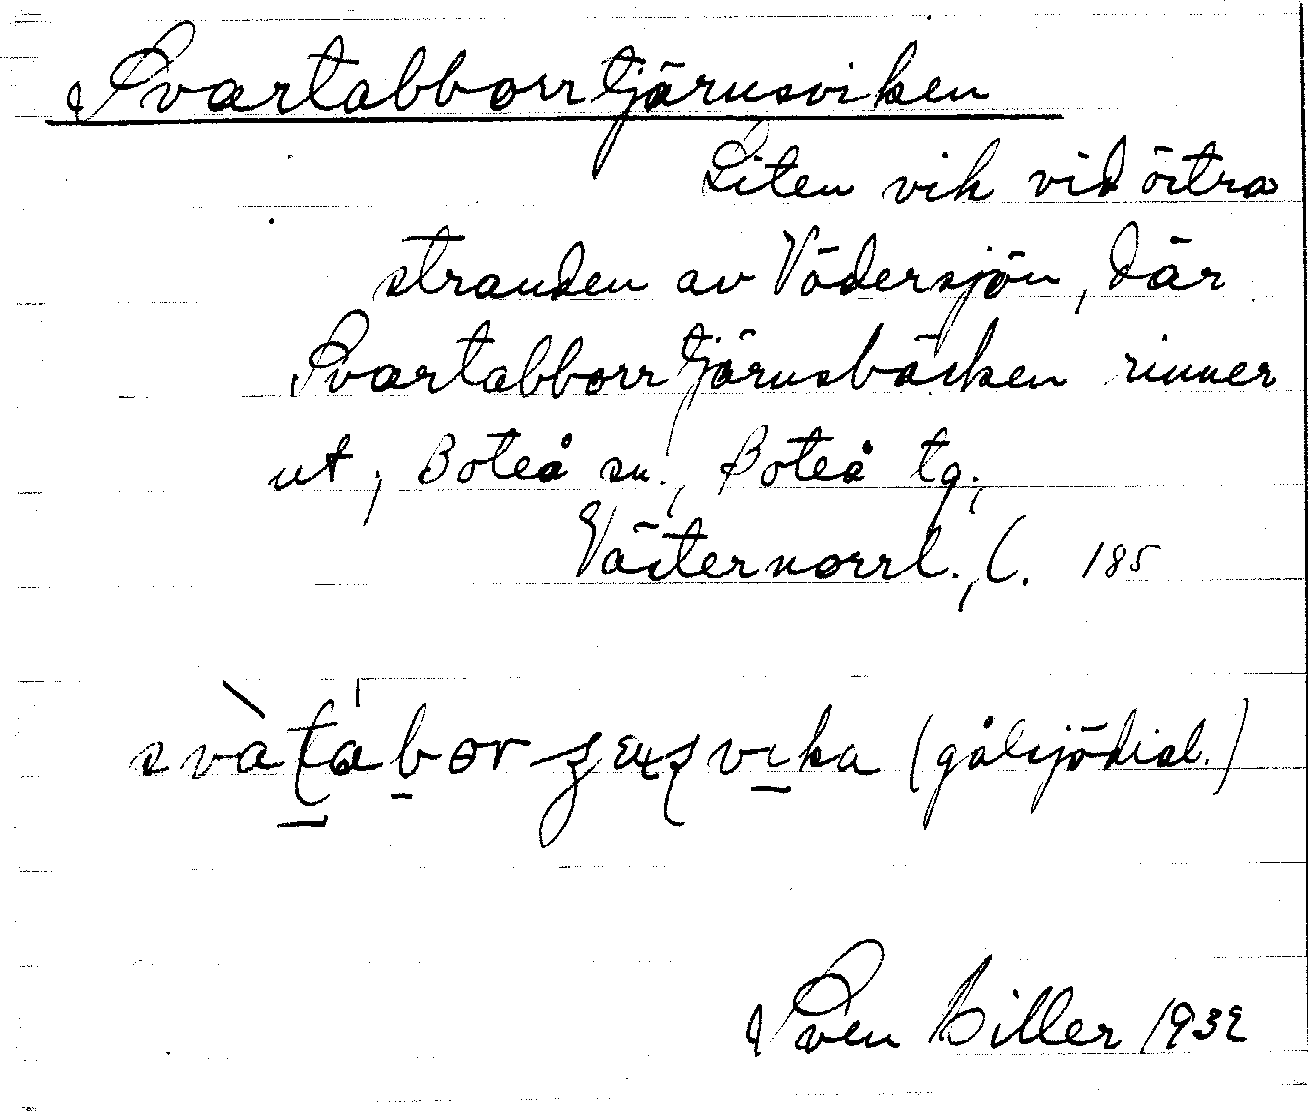 Svartabborrtjärnsviken
Liten vik vid östra
stranden av Vädersjön, där
Svartabborrtjärnsbäcken rinner
ut; Boteå sn., Boteå tg.,
Västernorrl., l. 185
(gålsjödial.)
Sven Hiller 1932